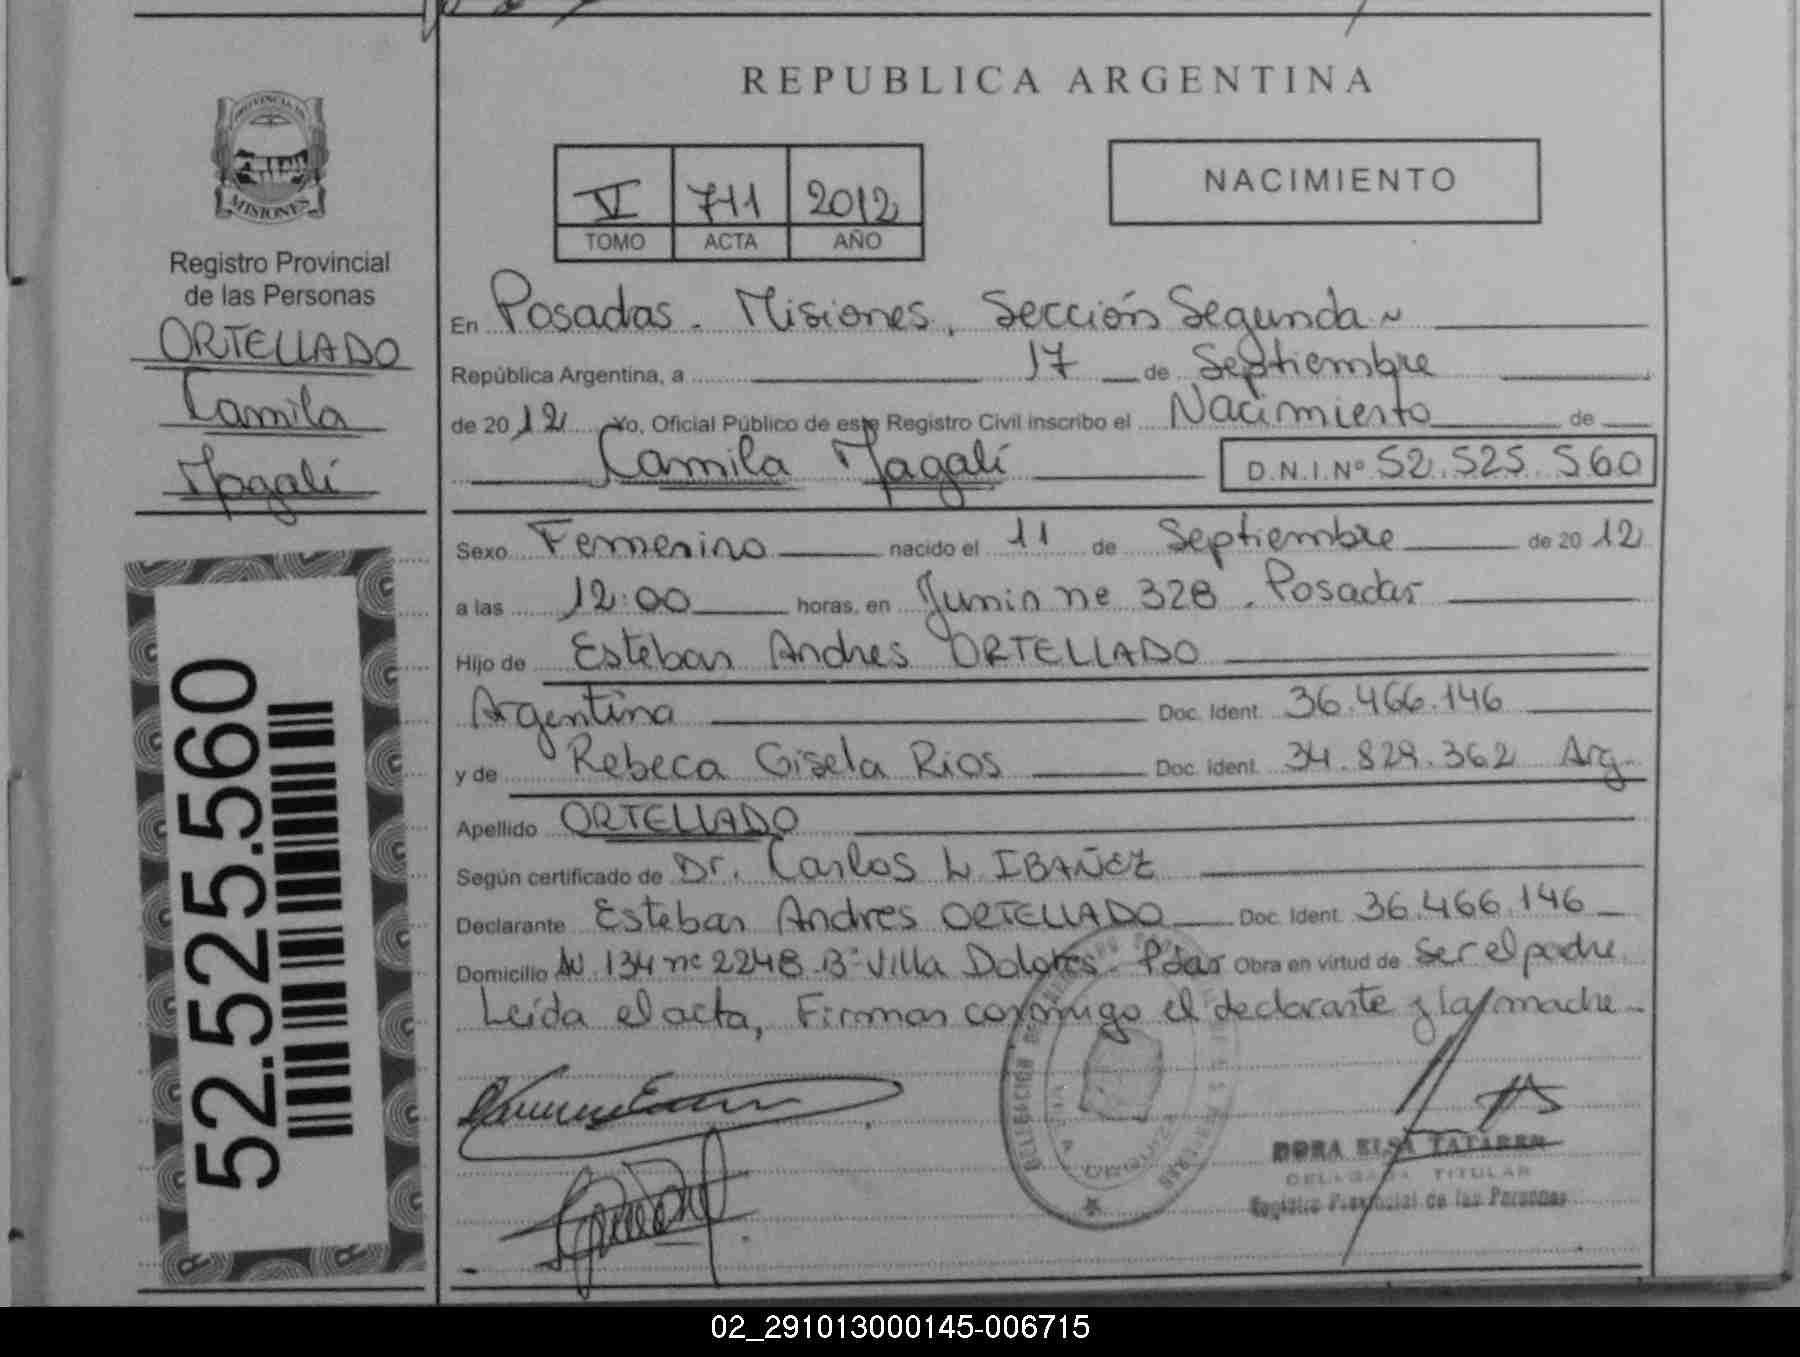 REPUBLICA ARGENTINA
PROVINCIA DE
MISIONES
Registro Provincial
de las Personas
ORTELLADO
Camila
Magalí
52.525.560
VI 711 2012
TOMO ACTA AÑO
NACIMIENTO
En Posadas. Misiones, Sección Segunda
República Argentina, a 17 de Septiembre
de 2012 Yo, Oficial Público de este Registro Civil inscribo el Nacimiento de
Camila Magalí D.N.I.Nº 52.525.560
Sexo Femenino nacido el 11 de Septiembre de 2012
a las 12:00 horas, en Junin nº 328. Posadas
Hijo de Esteban Andres ORTELLADO
Argentina Doc. Ident. 36.466.146
y de Rebeca Gisela Rios Doc. Ident. 34.829.362 Arg.
Apellido ORTELLADO
Según certificado de Dr. Carlos L IBAÑEZ
Declarante Esteban Andres ORTELLADO Doc. Ident. 36.466.146
Domicilio Av. 134 nº 2248 Bº Villa Dolores. Pdas Obra en virtud de Ser el padre
Leída el acta, Firman conmigo el declarante y la madre
DELEGACION
VILLA URQUIZA
DORA ELSA
DELEGADA TITULAR
Registro Provincial de las Personas
02_291013000145-006715